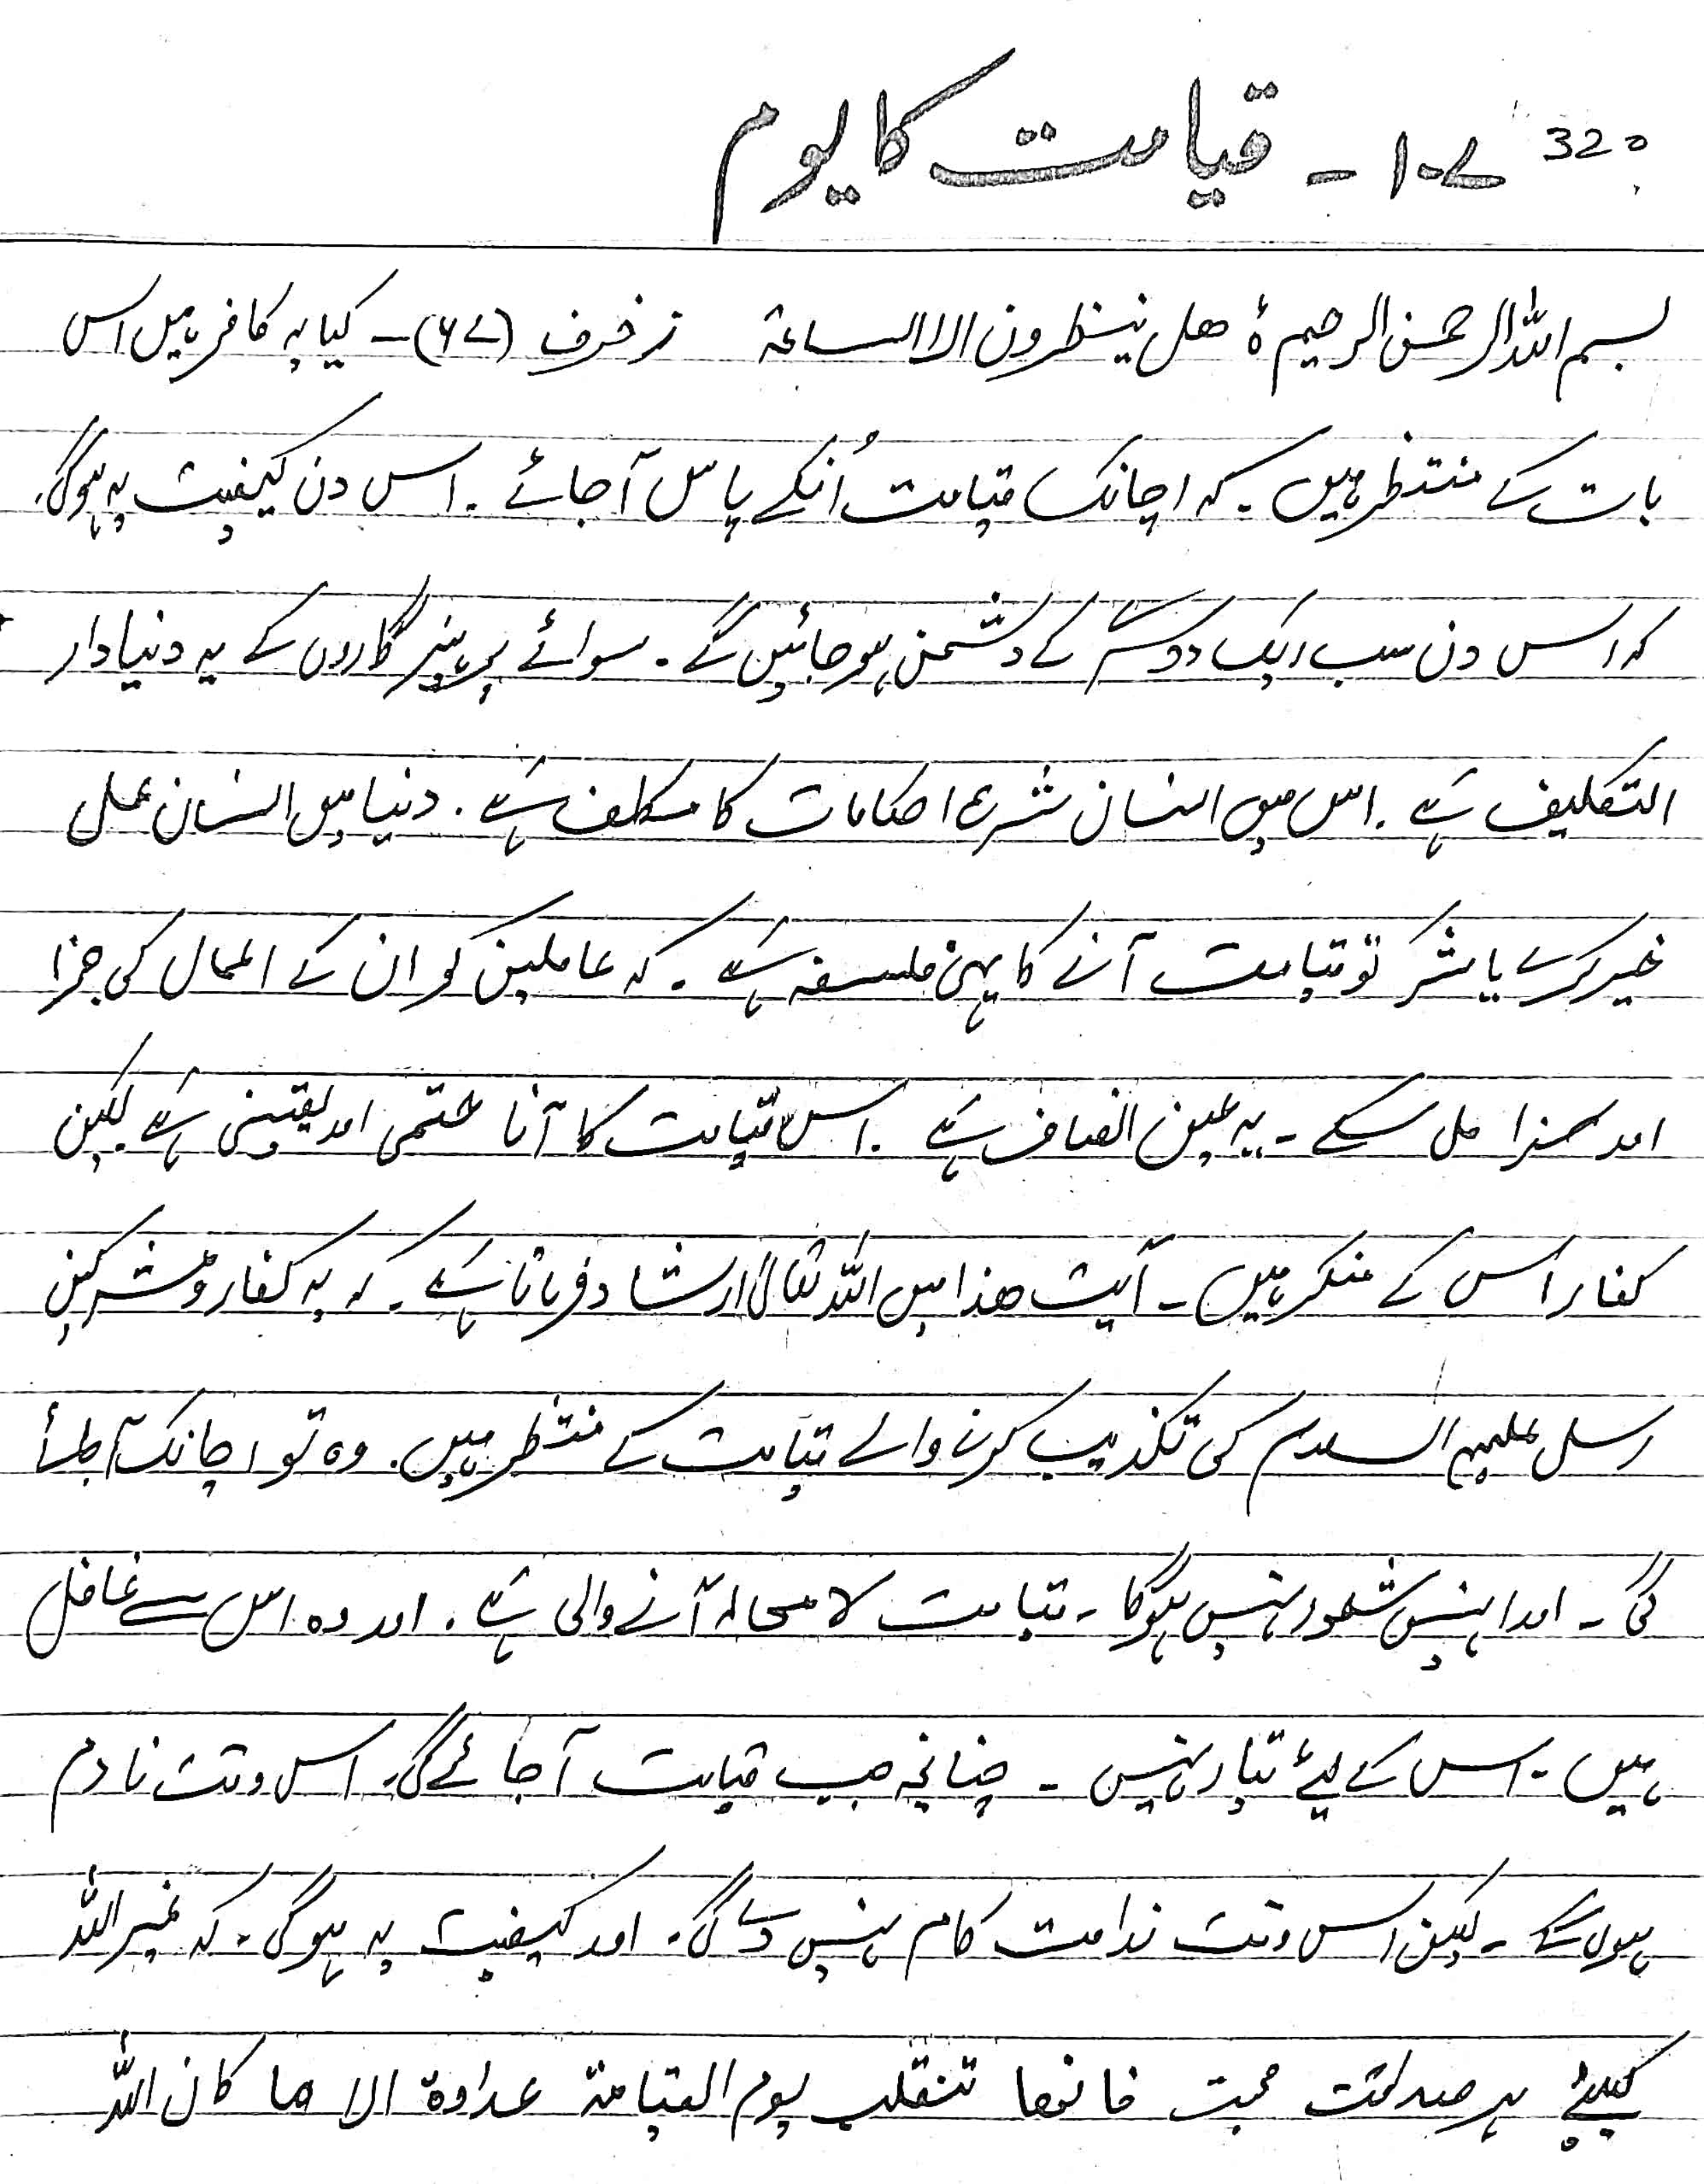 320 ۱۰۷ - قیامت کا یوم
بسم اللہ الرحمن الرحیم ہ ھل ینظرون الا الساعۃ زخرف (۶۷) - کیا یہ کافر ہیں اس
بات کے منتظر ہیں - کہ اچانک قیامت اُنکے پاس آ جائے - اس دن کیفیت یہ ہوگی -
کہ اس دن سب ایک دوسرے کے دشمن ہو جائیں گے - سوائے پرہیزگاروں کے یہ دنیا دار
التکلیف ہے - اس میں انسان شرعی احکامات کا مکلف ہے - دنیا میں انسان عمل
خیر کرے یا شر تو قیامت آنے کا یہی فلسفہ ہے - کہ عاملین کو ان کے اعمال کی جزا
اور سزا مل سکے - یہ عین انصاف ہے - اس قیامت کا آنا حتمی اور یقینی ہے لیکن
کفار اس کے منکر ہیں - آیت ھذا میں اللہ تعالیٰ ارشاد فرماتا ہے - کہ یہ کفار و مشرکین
رسل علیہم السلام کی تکذیب کرنے والے قیامت کے منتظر ہیں - وہ تو اچانک آ جائے
گی - اور انہیں شعور نہیں ہوگا - قیامت لا محالہ آنے والی ہے - اور وہ اس سے غافل
ہیں - اس کے لیئے تیار نہیں - چنانچہ جب قیامت آ جائے گی - اس وقت نادم
ہوں گے - لیکن اس وقت ندامت کام نہیں دے گی - اور کیفیت یہ ہوگی - کہ غیر اللہ
کیلئے ہر صداقت محبت فانھا تنقلب یوم القیامۃ عداوۃ الا ما کان اللہ